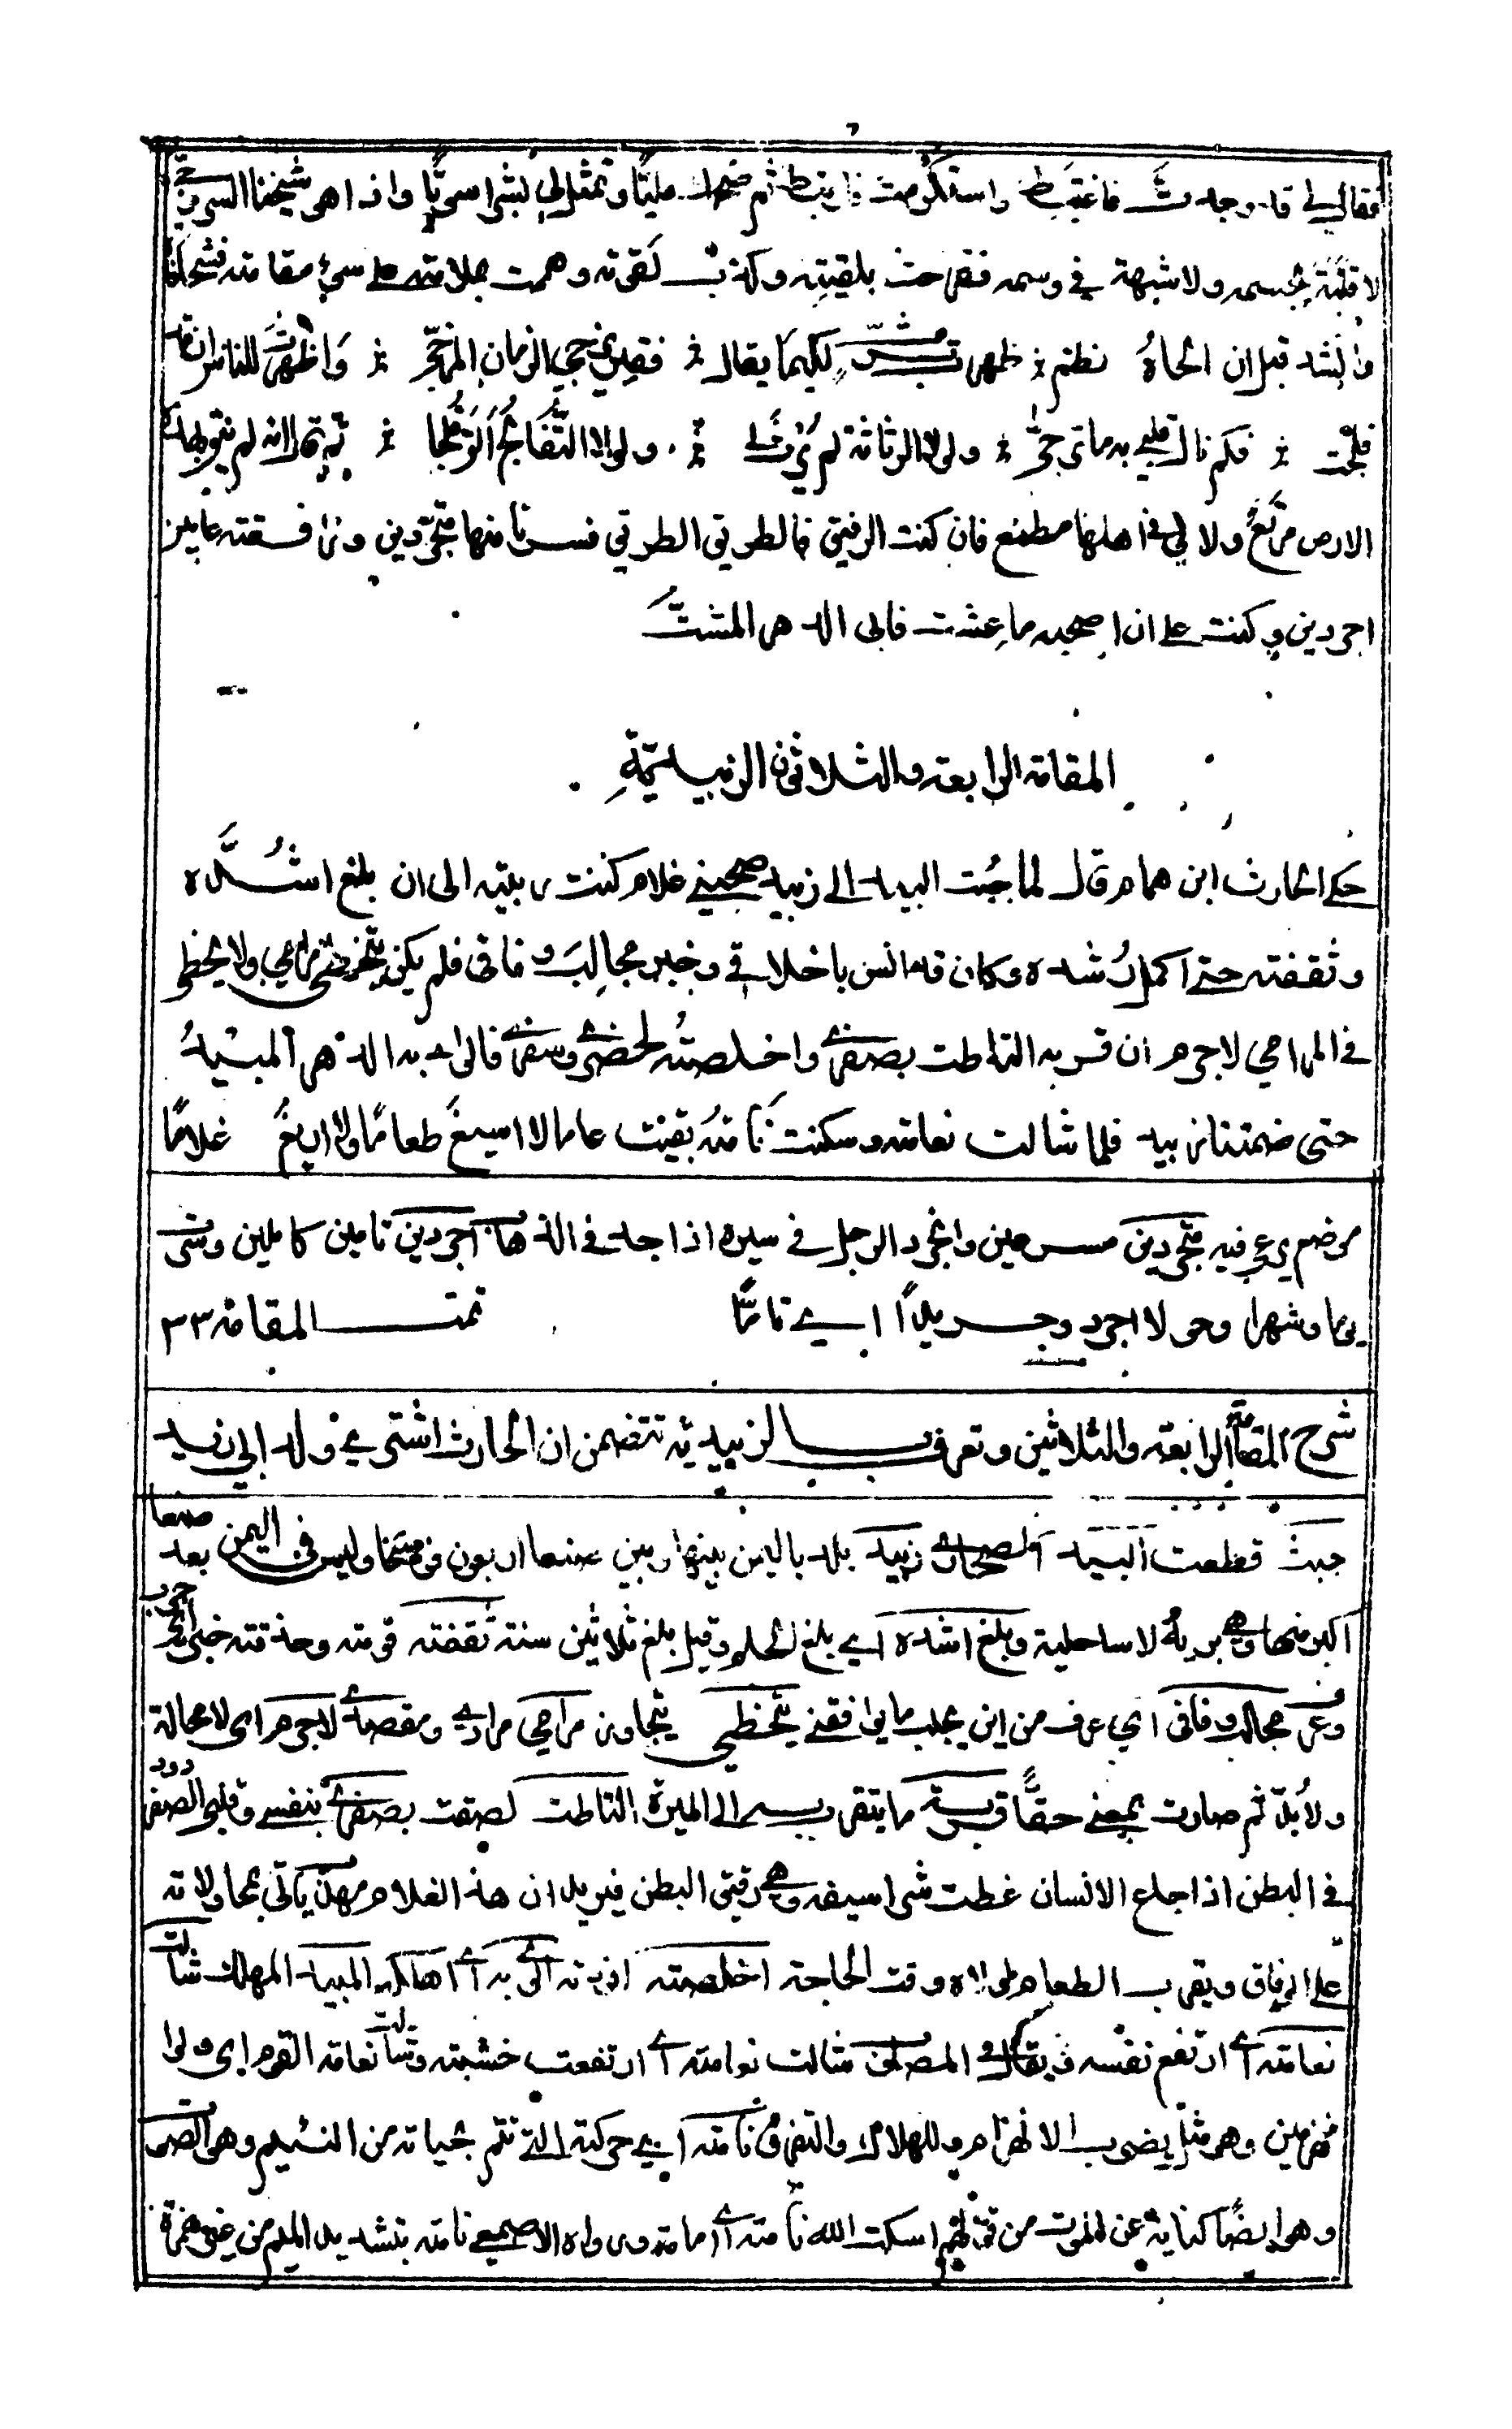 فقال لي قد وجدت فاغتبط واستكرمت فارتبط ثم ضحك مليًّا وتمثل لي بشرا سويًّا واذا هو شيخنا السروجي
لا قلبة بجسمه ولا شبهة في وسمه ففرحت بلقيته وكذب لقوته وهممت بملامته على سوء مقامته فشحا فاه
وانشد قبل ان الحاهُ نظم ظهرت برثٍّ لكيما يقال فقير يزجي الزمان المزجّى وَاظهرتُ للناس ان قد
فلجت فكم نال قلبي به ما ترجّى ولولا الرثاثة لم يُرث لي ولولا التفالج لم الق فلجا ثم قال انه لم يبق لي بهذه
الارض مرتعٌ ولا في اهلها مطمع فان كنت الرفيق فالطريق الطريق فسرنا منها متجرّدين ورافقته عامين
اجردين وكنت على ان اصحبه ما عشت فابى الدهر المشتّ
المقامة الرابعة والثلاثون الزبيديّةِ
حكى الحارث ابن همام قال لما جُبت البيد الى زبيد صحبني غلام كنت ربيته الى ان بلغ اشُدَّه
وثقفته حتى اكمل رُشده وكان قد انس باخلاقي وخبر مجالب وفاقي فلم يكن يتخطى مرامي ولا يخطي
في المرامي لا جرم ان قربه التاطت بصفري واخلصتُه لحضري وسفري فالوى به الدهر المبيدُ
حتى ضمتنا زبيد فلما شالت نعامته وسكنت نأمتهُ بقيت عاما لا اسيغُ طعامًا ولا اريغُ غلامًا
موضع يرعى فيه متجردين مسرعين وانجرد الرجل في سيره اذا جد في الذهاب اجردين تامين كاملين وسرت
يوما وشهرا وحولا اجرد وجريدًا اي تامًّا تمت المقامة ٣٣
شرح المقامة الرابعة والثلاثين وتعرف بالزبيدية تتضمن ان الحارث اشترى في الى زبيد
جبت قطعت البيد الصحارى زبيد بلد باليمن بينها وبين صنعا اربعون فرسخا وليس في اليمن بعد صنعا
اكبر منها وهي برية لا ساحلية وبلغ اشده اي بلغ الحلم وقيل بلغ ثلاثين سنة ثقفته قومته وحذقته خبر جرب
وعرف مجالب وفاقي اي عرف من اين يجلب ما يوافقني يتخطى يتجاوز مرامي مرادي ومقصدي لا جرم اي لا محالة
ولا بدّ ثم صارت بمعنى حقًّا قربه ما يتقرب به الى الميرة التاطت لصقت بصفري بنفسي وقلبي الصفر دود
في البطن اذا جاع الانسان غطت شراسيفه وهي رقيق البطن فيريد ان هذا الغلام ياتي بمحاولاته
على الرفاق ويقرب الطعام لمولاه وقت الحاجة اخلصته افردته الوى به اي اهلكه المبيد المهلك شالت
نعامته اي ارتفع نفسه ويقال في المصلوب شالت نعامته اي ارتفعت خشبته وشالت نعامة القوم اي ولوا
منهزمين وهو مثل يضرب للانهزام وللهلاك والتفرق نأمته اي حركته التي تتم بحياته من النئيم وهو الصوت
وهو ايضًا كناية عن الموت من قولهم اسكت الله نأمته اي اماته ورواه الاصمعي نامته بتشديد الميم من غير همزة